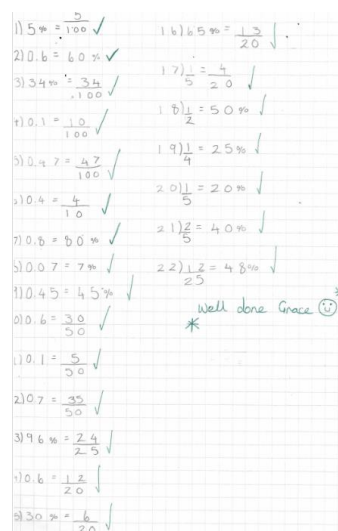 1) 5% = 5/100 ✓
2) 0.6 = 60% ✓
3) 34% = 34/100 ✓
4) 0.1 = 10/100 ✓
5) 0.47 = 47/100 ✓
6) 0.4 = 4/10 ✓
7) 0.8 = 80% ✓
8) 0.07 = 7% ✓
9) 0.45 = 45% ✓
0) 0.6 = 30/50 ✓
1) 0.1 = 5/50 ✓
2) 0.7 = 35/50 ✓
3) 96% = 24/25 ✓
4) 0.6 = 12/20 ✓
5) 30% = 6/20 ✓
16) 65% = 13/20 ✓
17) 1/5 = 4/20 ✓
18) 1/2 = 50% ✓
19) 1/4 = 25% ✓
20) 1/5 = 20% ✓
21) 2/5 = 40% ✓
22) 12/25 = 48% ✓
Well done Grace ☺
*